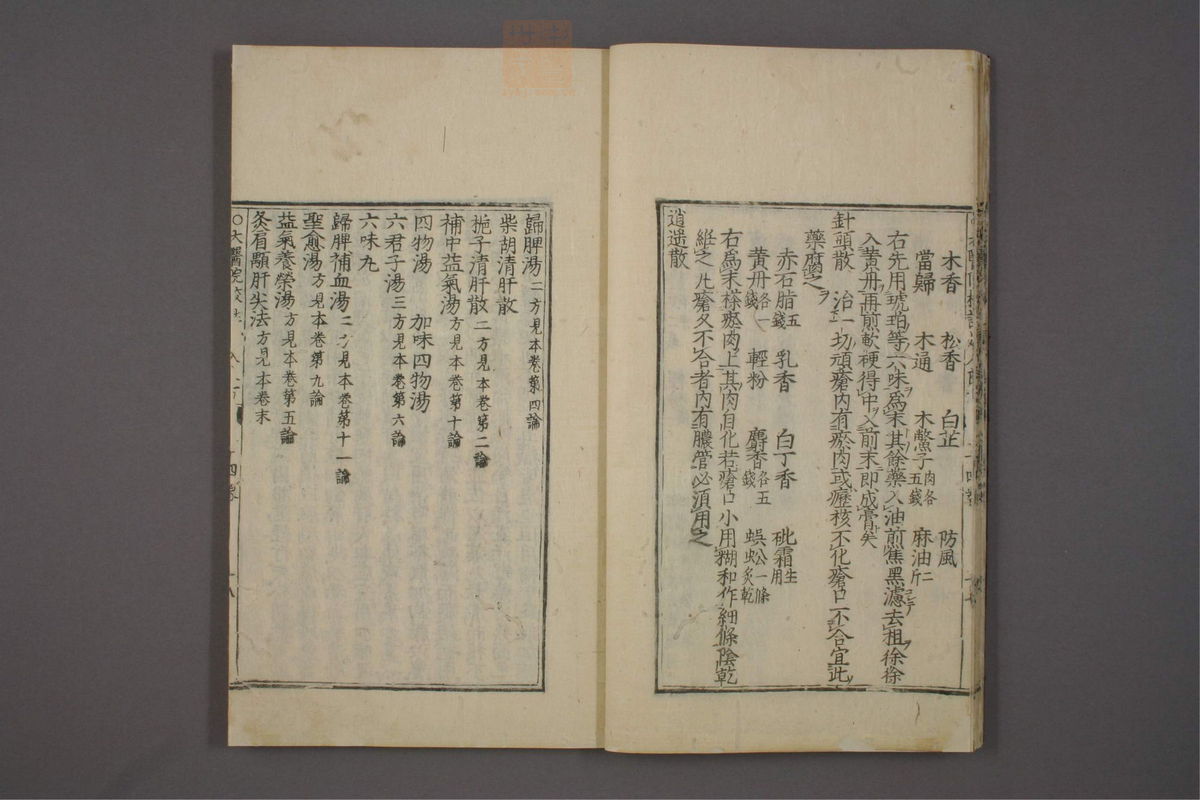 木香 松香 白芷 防風
當歸 木通 木鱉子肉各五錢 麻油二斤
右先用琥珀等六味爲末其餘藥入油煎焦黑濾去柤徐徐
入黃丹再煎軟硬得中入前末即成膏矣
針頭散 治一切頑瘡內有瘀肉或瘰核不化瘡口不合宜此
藥腐之
赤石脂五錢 乳香 白丁香 砒霜生用
黃丹各一錢 輕粉 麝香各五錢 蜈蚣一條炙乾
右爲末搽瘀肉上其肉自化若瘡口小用糊和作細條陰乾
維之凡瘡久不合者內有膿管必須用之
逍遙散
歸脾湯二方見本卷第四論
柴胡清肝散
梔子清肝散二方見本卷第二論
補中益氣湯方見本卷第十論
四物湯 加味四物湯
六君子湯三方見本卷第六論
六味丸
歸脾補血湯二方見本卷第十一論
聖愈湯方見本卷第九論
益氣養榮湯方見本卷第五論
灸肩顒肝尖法方見本卷末